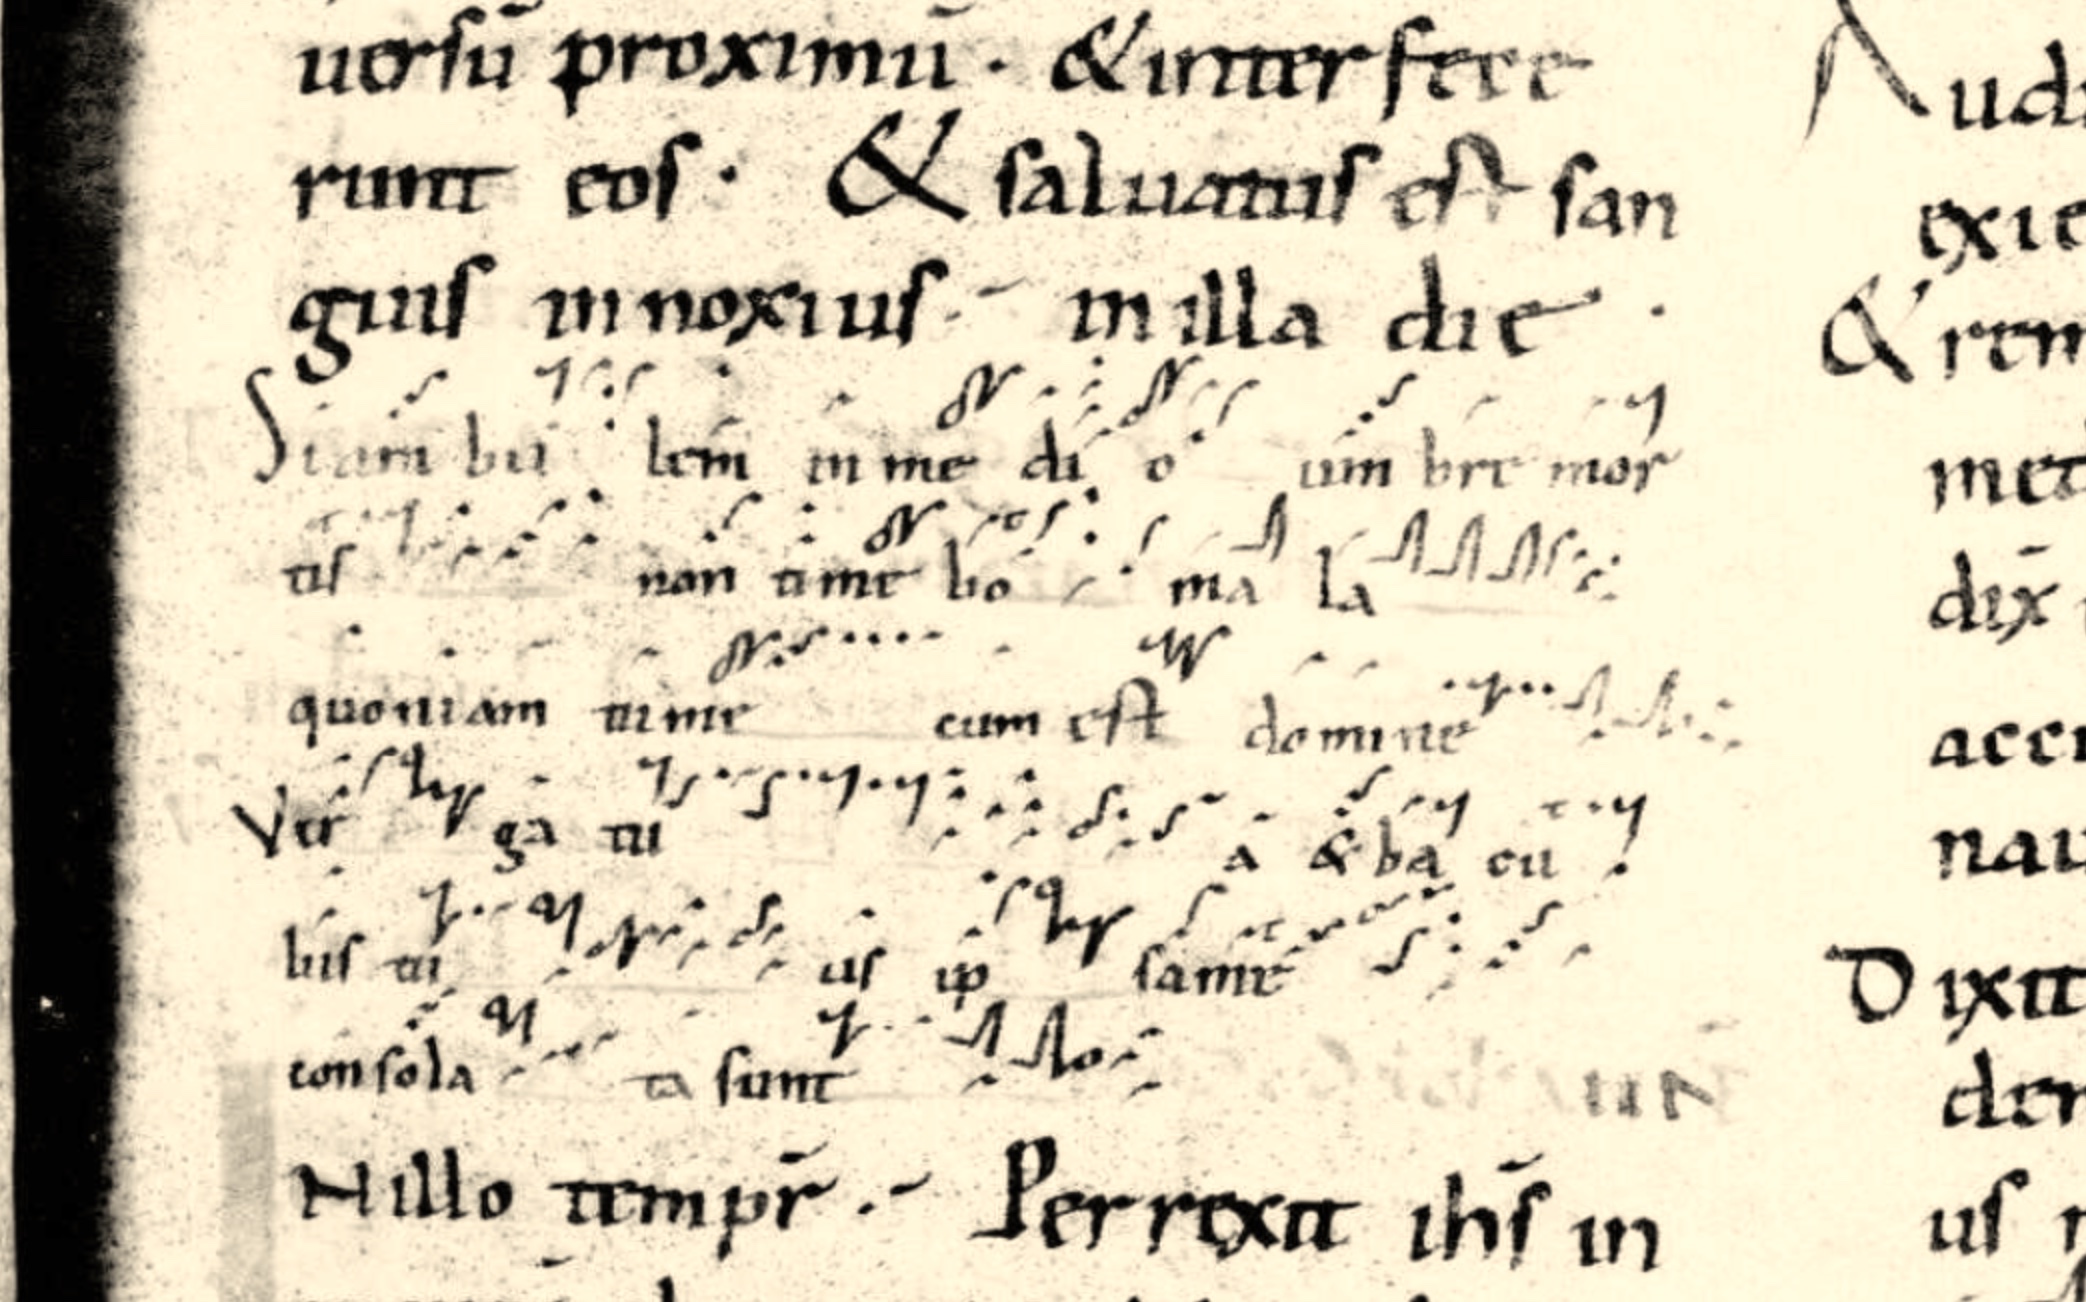 uersū proximū · & interfece
runt eos · & saluatus est san
guis innoxius · in illa die ·
Si am bu lem in me di o um bre mor
tis non time bo ma la
quoniam tu me cum est domine
Vir ga tu a & ba cu
lus tu us ip sa me
con sola ta sunt
N illo tempr̄ · Perrexit ihs̄ in
Audi
exie
& rem
met
dix̄
acce
nau
Dixit
der
us